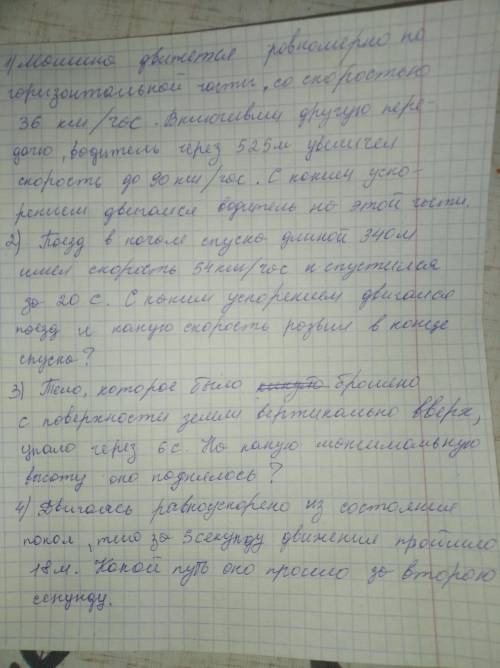 1) Машина движется ровномерно по
горизонтальной части, со скоростью
36 км/час. Включивши другую пере-
дачу, водитель через 525м увеличил
скорость до 90 км/час. С каким уско-
рением двигался водитель на этой части.
2) Поезд в начале спуска длиной 340м
имел скорость 54км/час и спустился
за 20 с. С каким ускорением двигался
поезд и какую скорость розвил в конце
спуска?
3) Тело, которое было кинуто брошено
с поверхности земли вертикально вверх,
упало через 6с. На какую максимальную
высоту оно поднялось?
4) Двигаясь равноускорено из состояния
покоя, тело за 5 секунду движения пройшло
18м. Какой путь оно прошло за вторую
секунду.